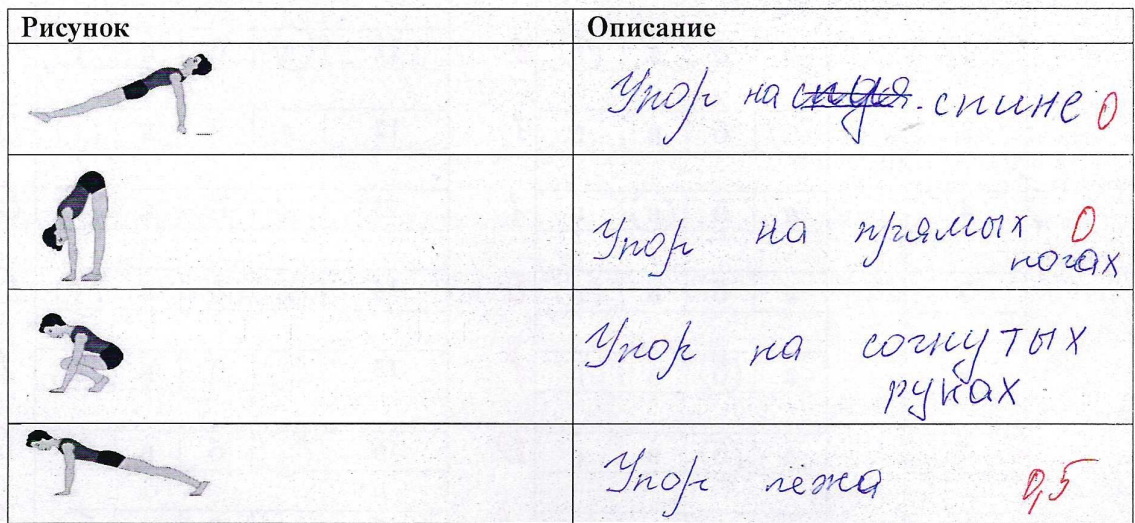 Рисунок Описание
Упор на спине 0
Упор на прямых 0
ногах
Упор на согнутых
руках
Упор лёжа 0,5